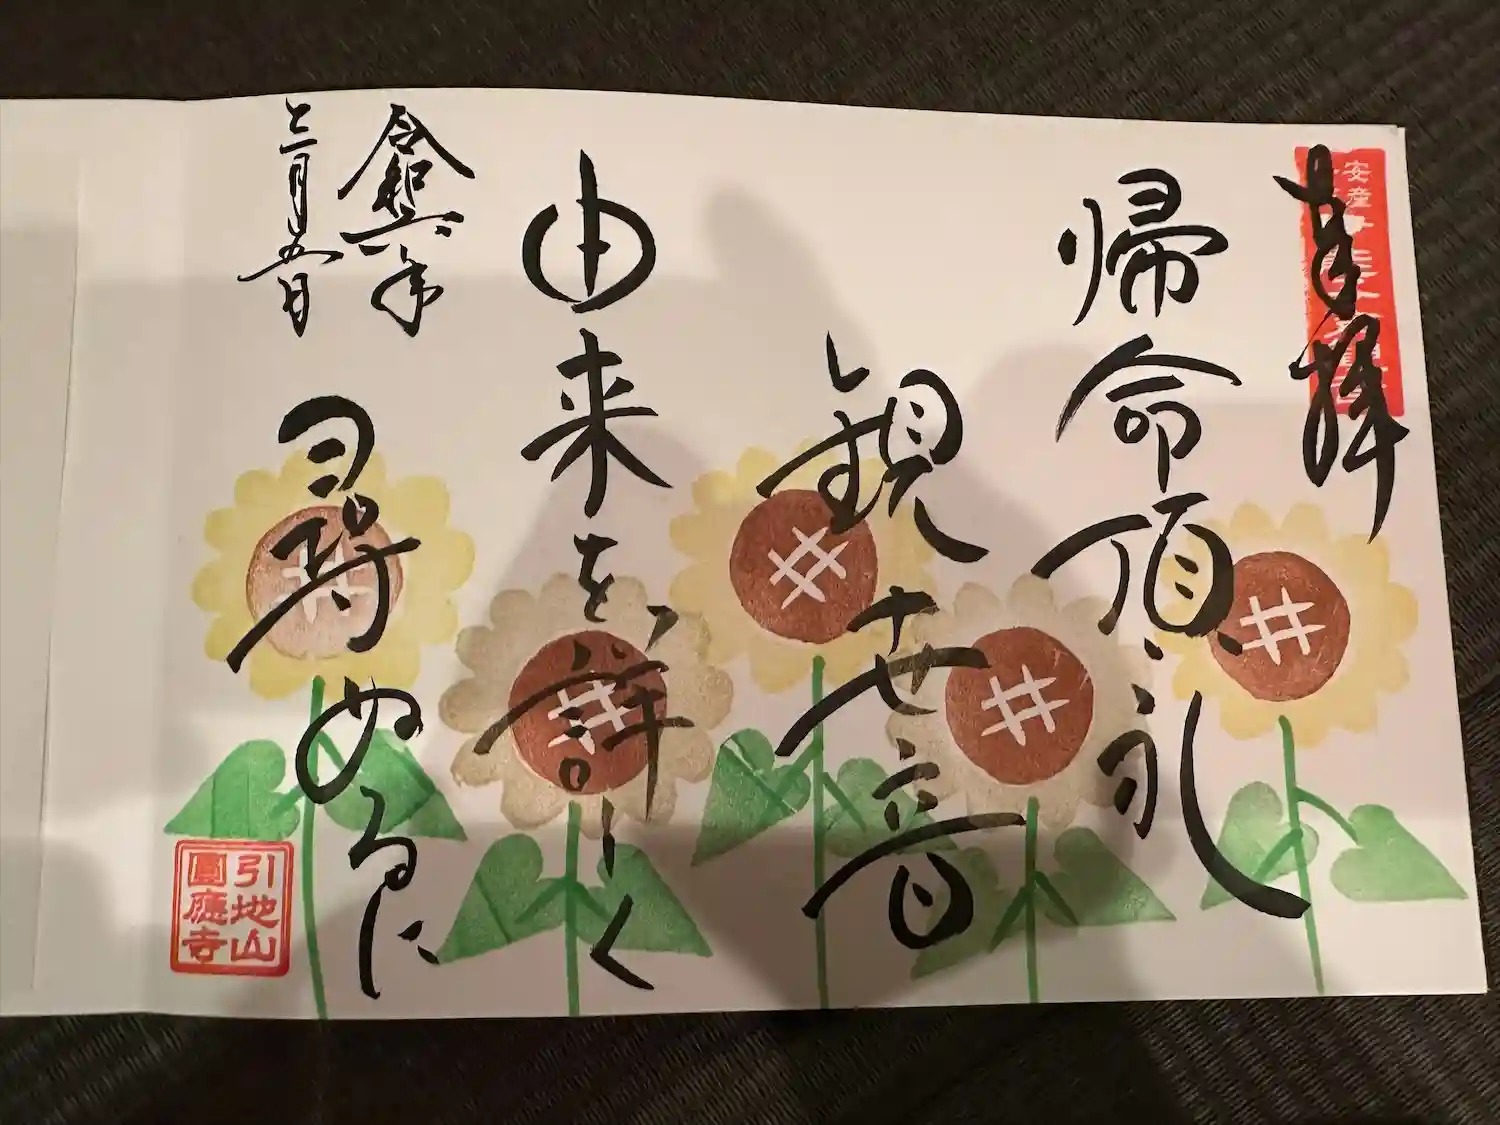 奉拝
安産
帰命頂礼
観世音
由来を詳しく
尋ぬるに
令和六年
三月五日
引地山
圓應寺